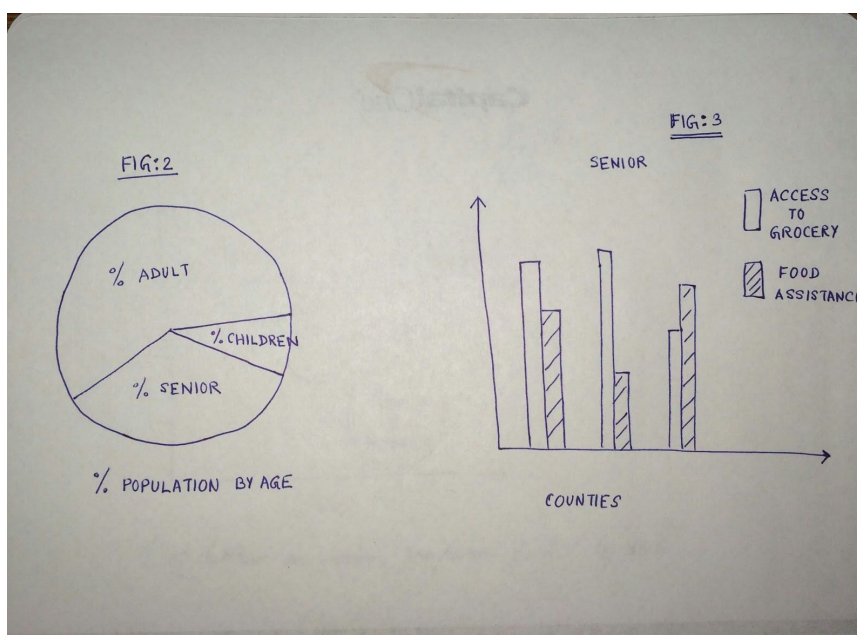 FIG:2
% ADULT
% CHILDREN
% SENIOR
% POPULATION BY AGE
FIG:3
SENIOR
ACCESS
TO
GROCERY
FOOD
ASSISTANCE
COUNTIES